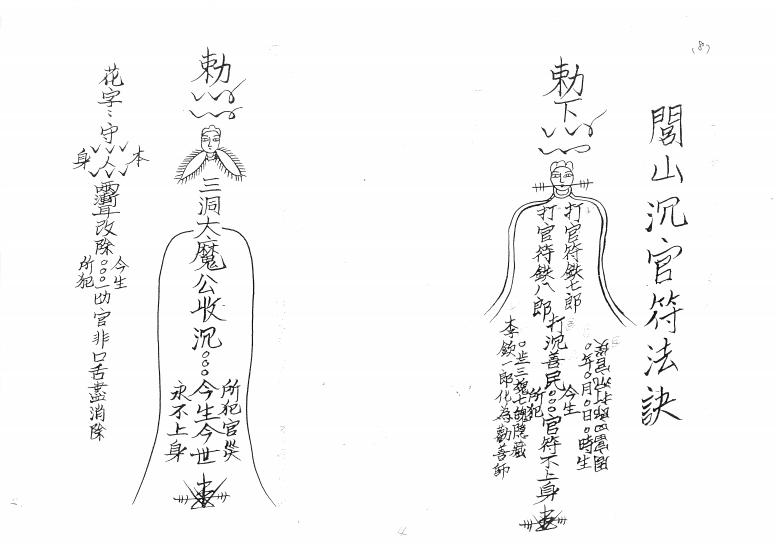 (8)
閭山沉官符法訣
勅下
打官符鉄七郎
打官符鉄八郎
打沉善民○○○官符不上身
今生
所犯
○年○月○日○時生
○三魂七魄隱藏
李欽一郎化為勸善師
勅
三洞大魔公收沉○○○今生今世
所犯官災
永不上身
花字守人
本身
改除○○○一切官非口舌盡消除
今生
所犯